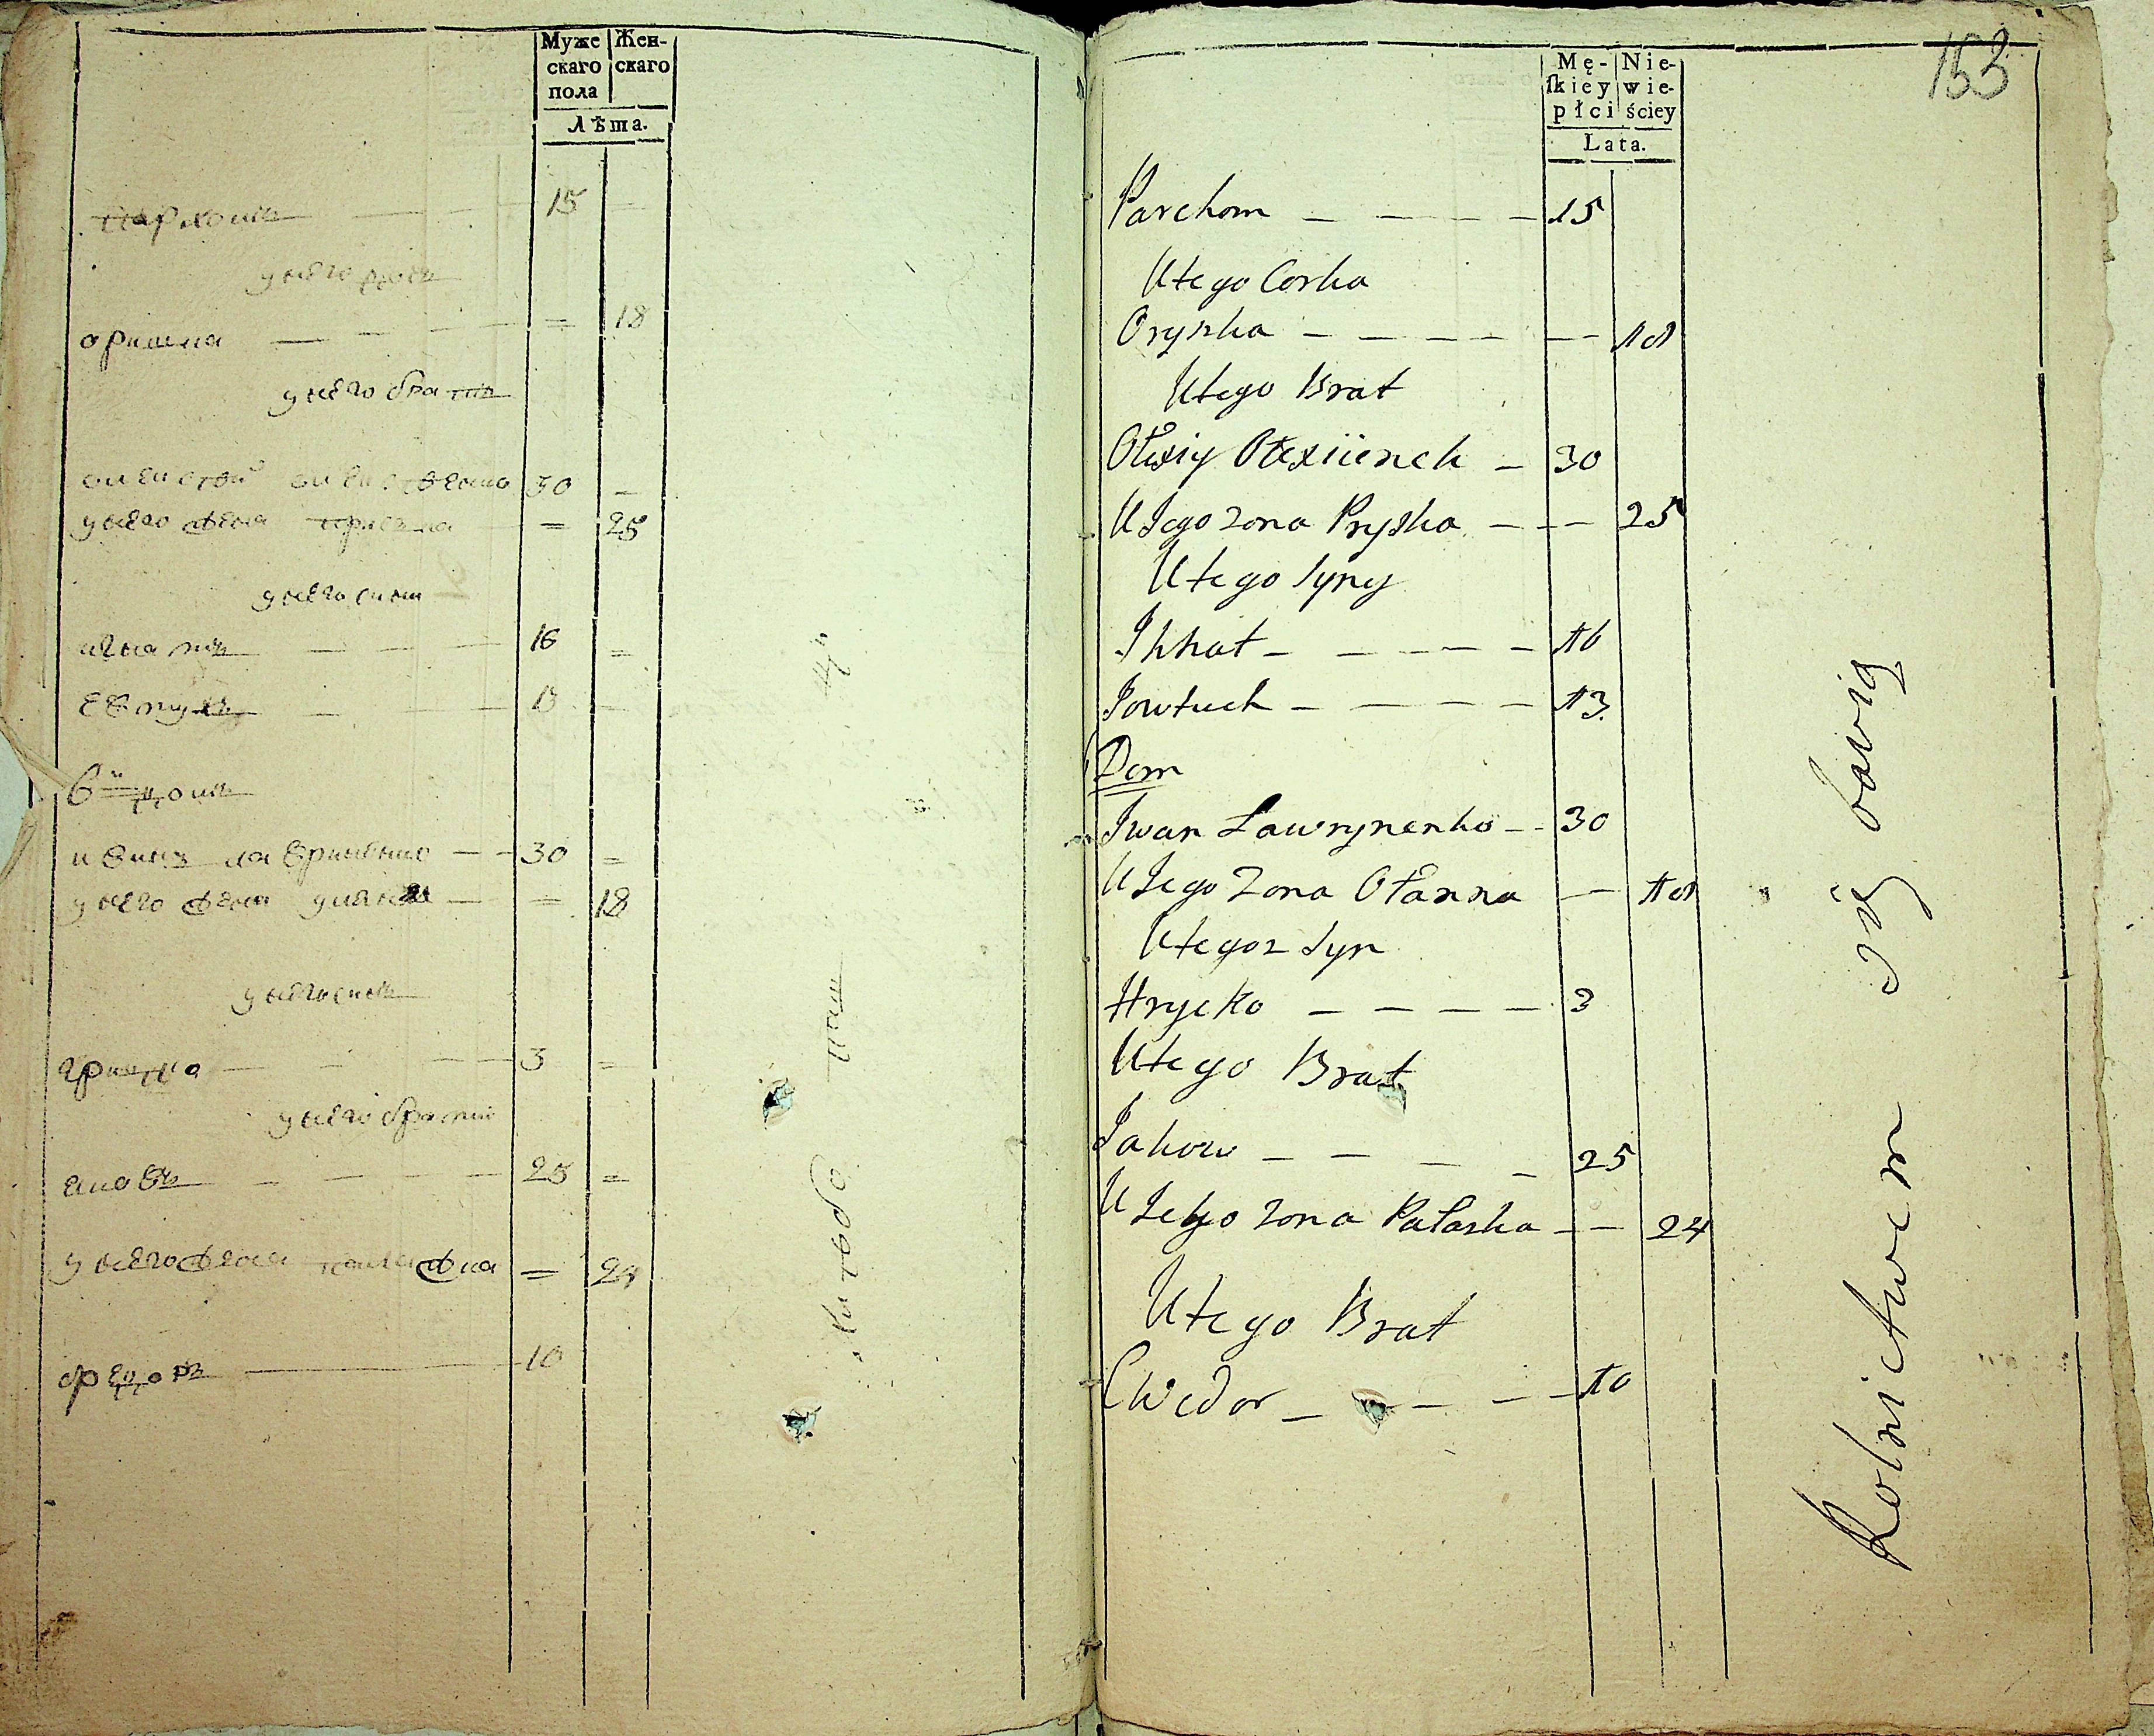 Муже Жен-
скаго скаго
пола
Лѣта.
Пархомъ — — — 15 —
у него дочь
оришка — — — = 18
у него братъ
олексѣй олексѣенко 30 —
у него жена приська = 25
у него сыны
игнатъ — — — 16 =
евтухъ — — — 13 —
6й домъ
иванъ лавриненко — — 30 =
у него жена улияна — = 18
у него сынъ
грицко — — — 3 =
у него братъ
яковъ — — — 25 =
у него жена палажка = 24
федоръ — 10
153
Mę- Nie-
ſkiey wie-
płci ściey
Lata.
Parchom — — — — 15
U tego Corka
Oryszka — — — — — — 18
U tego Brat
Ołexiy Ołexiienck — 30
U Jego zona Pryska — — — 25
U tego Syny
Ihnat — — — — — 16
Jowtuch — — — — 13
Dom
Iwan Ławrynenko — - 30
U Jego Zona Ołanna — 18
U tegoz Syn
Hrycko — — — — 3
U tego Brat
Jakow — — — — 25
U Jego zona Pałaska — — 24
U tego Brat
Chwedor — — — — 10
Rolnictwem się bawią